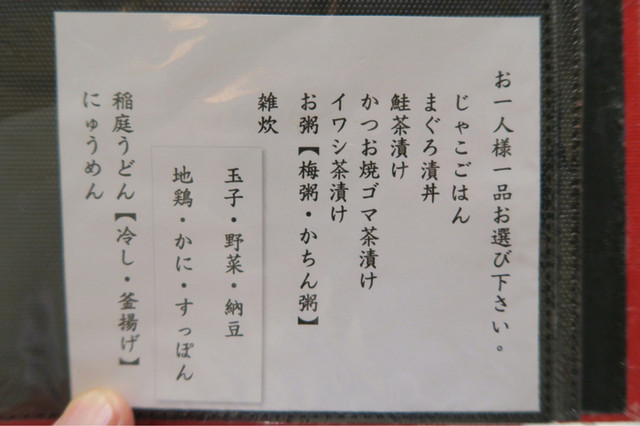 お一人様一品お選び下さい。
じゃこごはん
まぐろ漬丼
鮭茶漬け
かつお焼ゴマ茶漬け
イワシ茶漬け
お粥【梅粥・かちん粥】
雑炊
玉子・野菜・納豆
地鶏・かに・すっぽん
稲庭うどん【冷し・釜揚げ】
にゅうめん